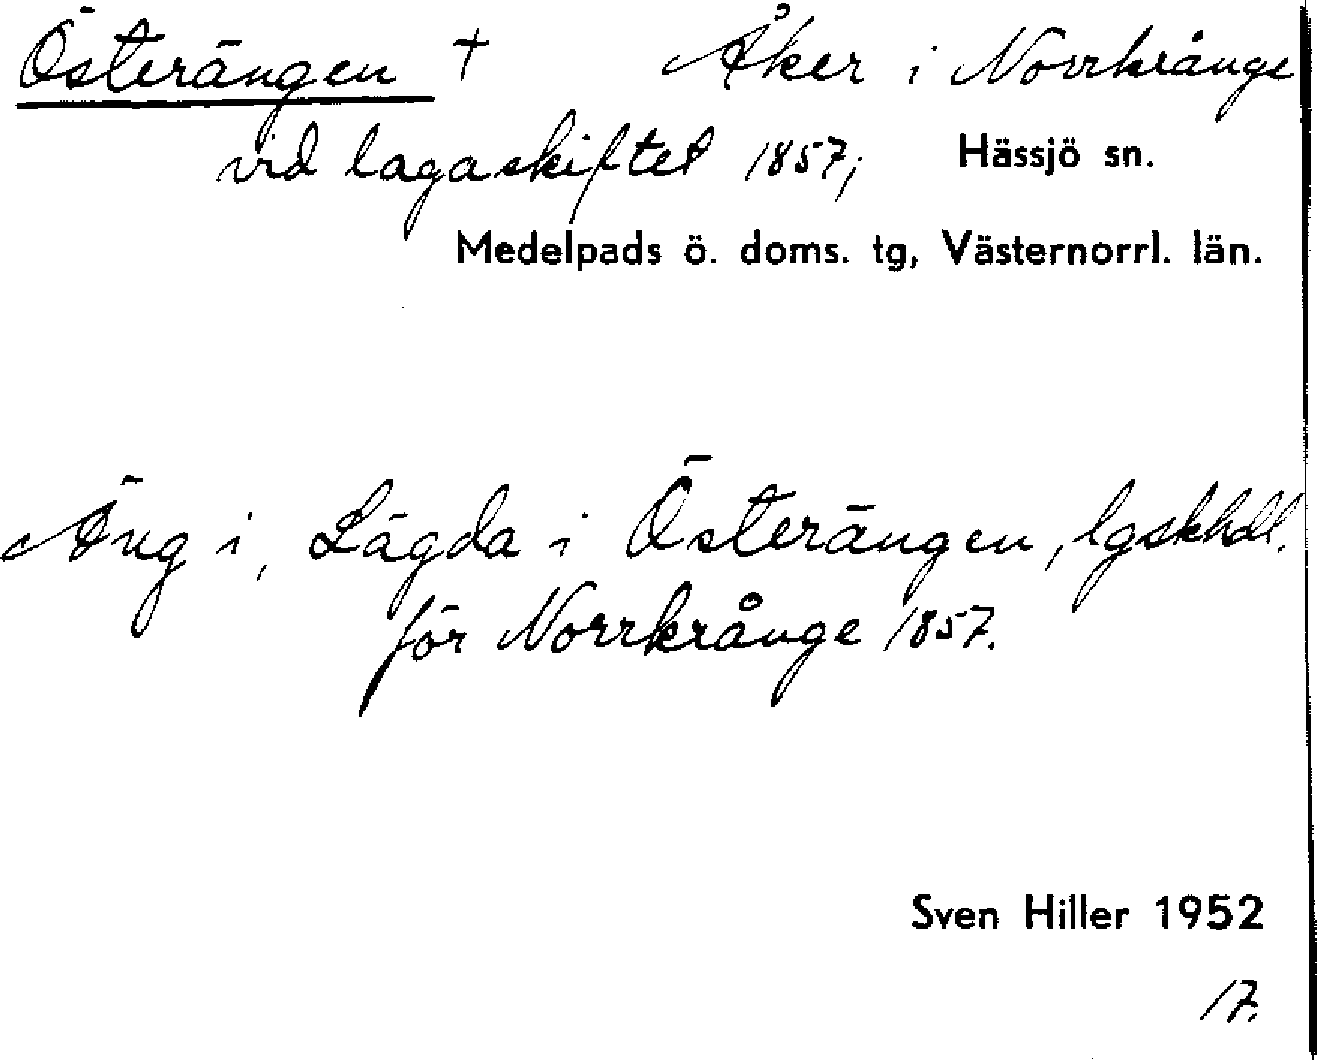 Österängen † Åker i Norrkrånge
vid lagaskiftet 1857; Hässjö sn.
Medelpads ö. doms. tg, Västernorrl. län.
Äng i, Lägda i Österängen, lgskhdl.
för Norrkrånge 1857.
Sven Hiller 1952
17.